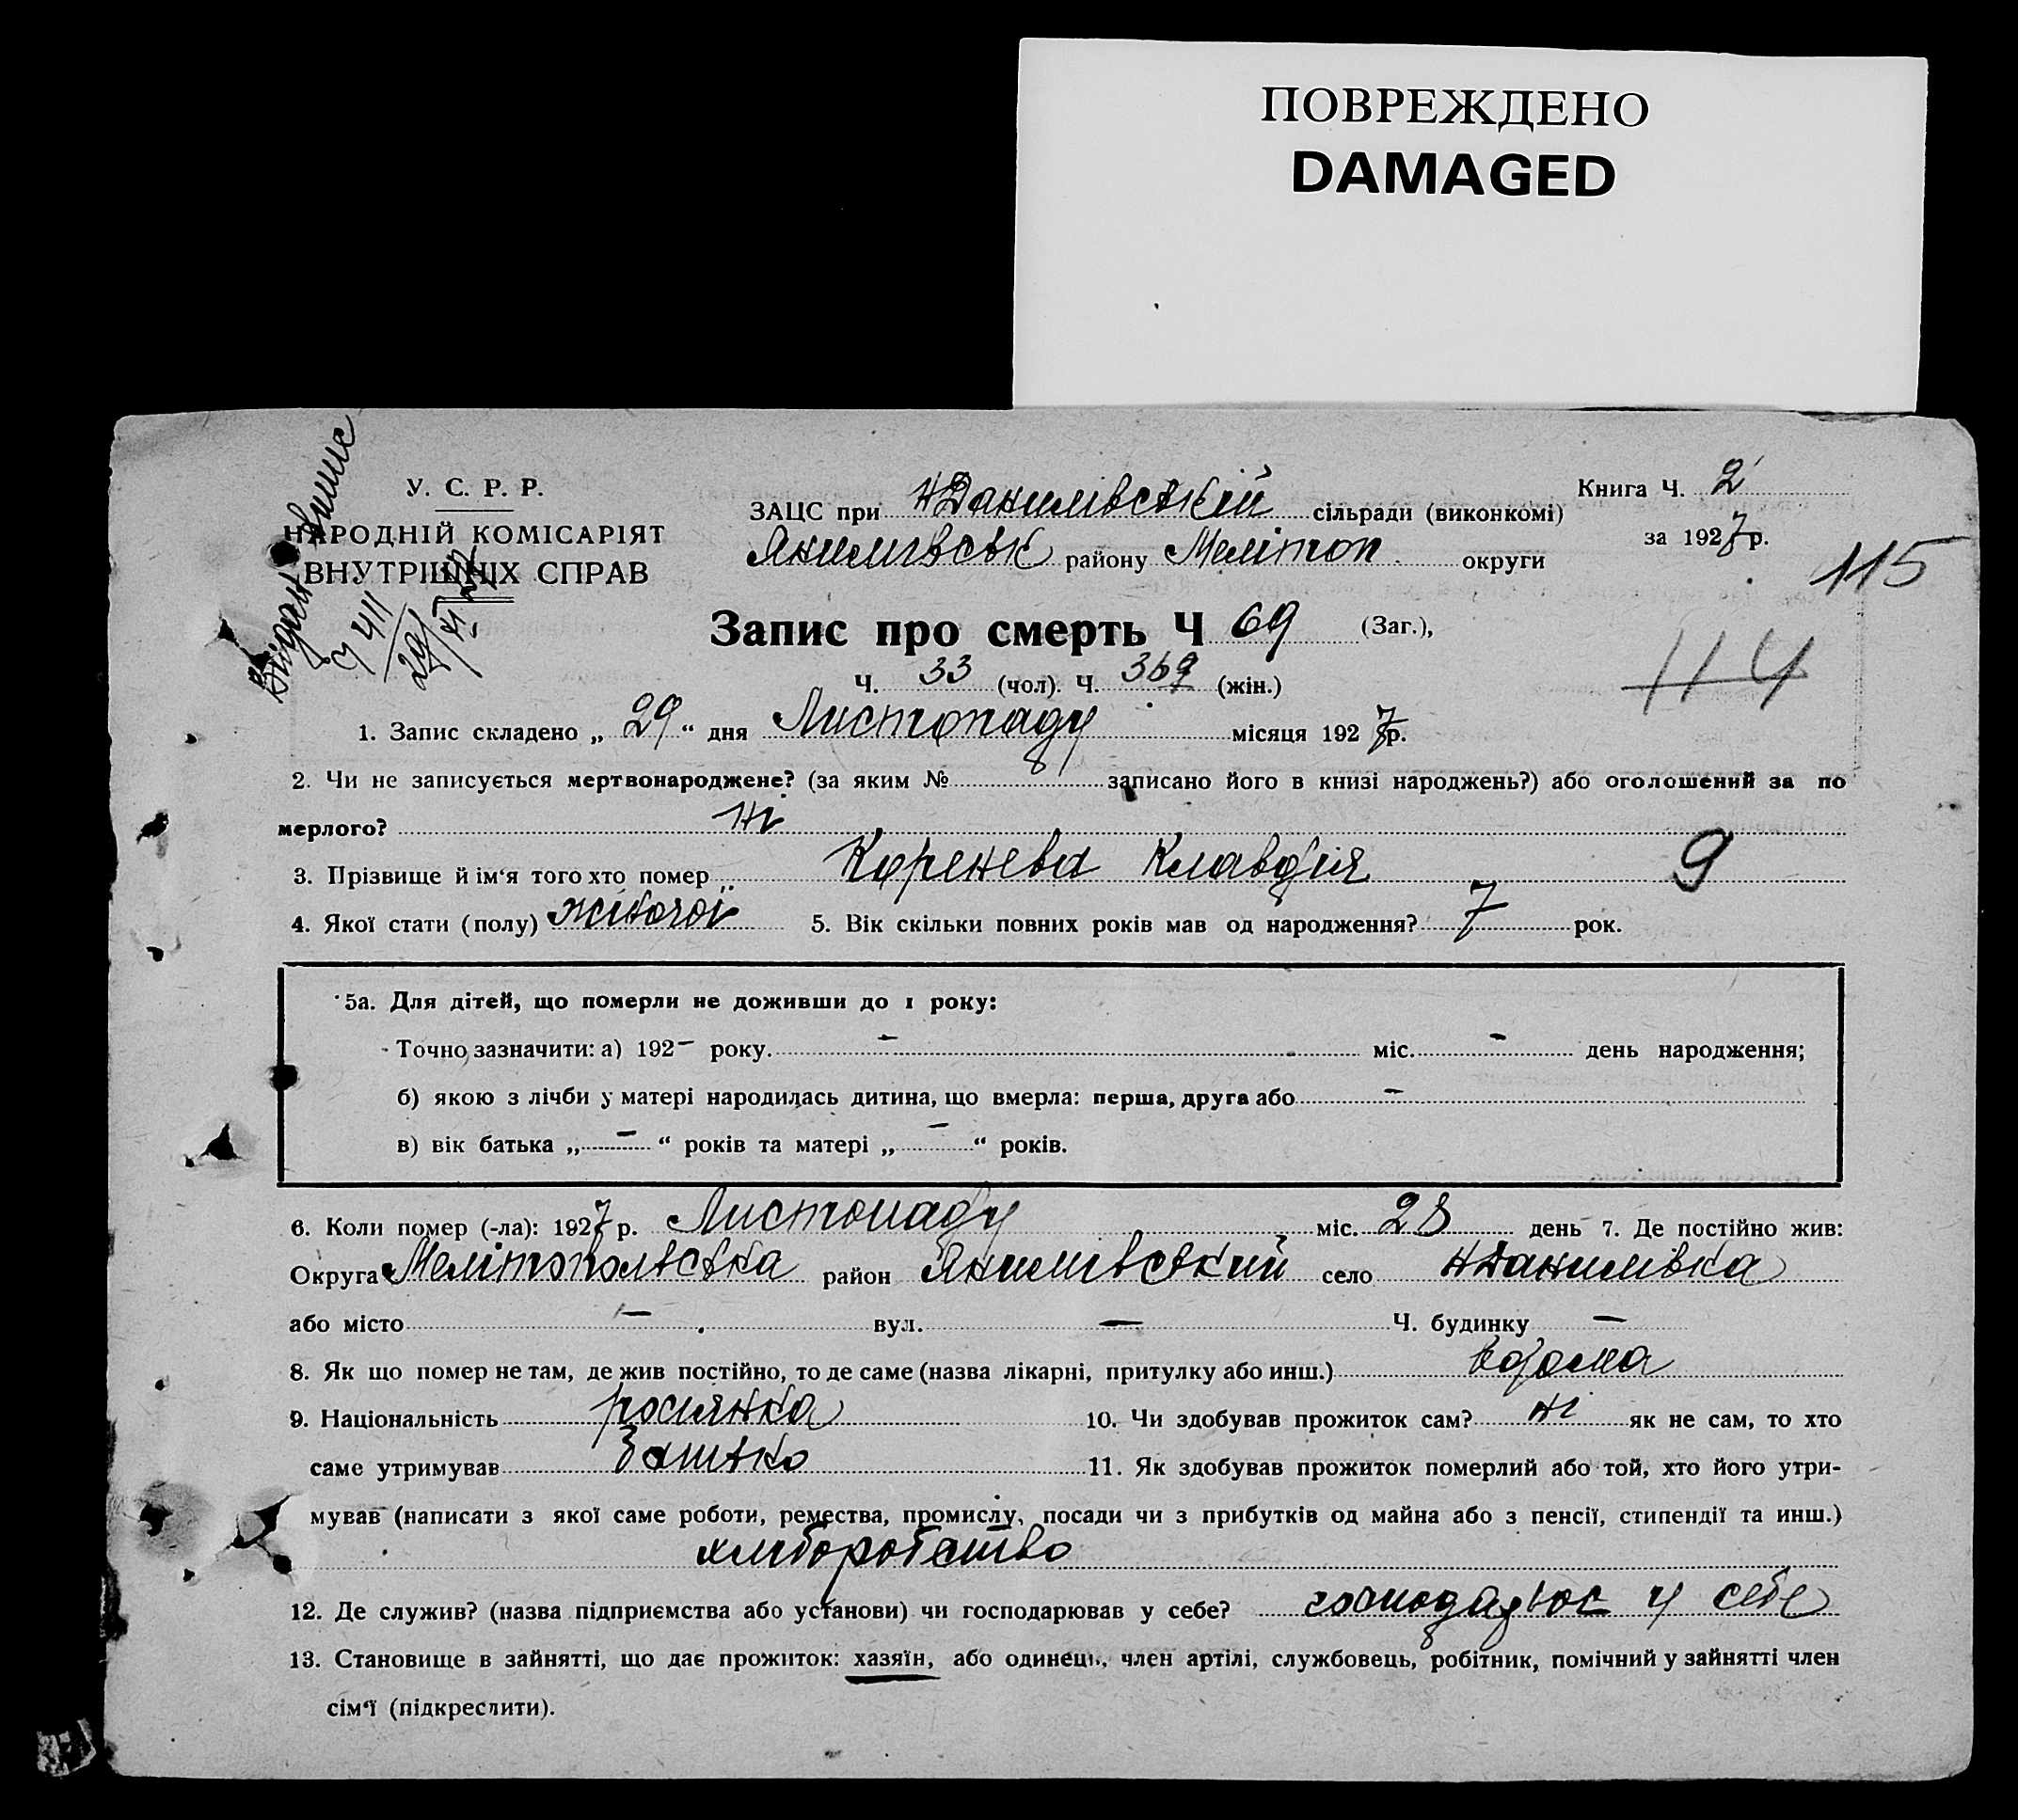 ПОВРЕЖДЕНО
DAMAGED
Видан выпис
У. С. Р. Р.
НАРОДНІЙ КОМІСАРІЯТ
ВНУТРІШНІХ СПРАВ
ЗАЦС при НДанилівській сільради (виконкомі)
Якимівськ району Мелітоп округи
Книга Ч. 2
за 1927 р.
115
114
Запис про смерть Ч 69 (Заг.),
Ч. 33 (чол). Ч. 36 (жін.)
1. Запис складено „ 29 “ дня Листопаду місяця 1927 р.
2. Чи не записується мертвонароджене? (за яким № записано його в книзі народжень?) або оголошений за по
мерлого? Ні
3. Прізвище й ім‘я того хто помер Коренева Клавдія 9
4. Якої стати (полу) жіночої 5. Вік скільки повних років мав од народження? 7 рок.
5а. Для дітей, що померли не доживши до 1 року:
Точно зазначити: а) 192– року. – міс. – день народження;
б) якою з лічби у матері народилась дитина, що вмерла: перша, друга або –
в) вік батька „ – “ років та матері „ – “ років.
6. Коли помер (-ла): 1927 р. Листопаду міс. 28 день 7. Де постійно жив:
Округа Мелітопольська район Якимівський село НДанилівка
або місто – вул. – Ч. будинку –
8. Як що помер не там, де жив постійно, то де саме (назва лікарні, притулку або инш.) вдома
9. Національність росиянка 10. Чи здобував прожиток сам? ні як не сам, то хто
саме утримував Батько 11. Як здобував прожиток померлий або той, хто його утри-
мував (написати з якої саме роботи, ремества, промислу, посади чи з прибутків од майна або з пенсії, стипендії та инш.)
хліборобство
12. Де служив? (назва підприємства або установи) чи господарював у себе? господарює у себе
13. Становище в зайнятті, що дає прожиток: хазяїн, або одинець, член артілі, службовець, робітник, помічний у зайнятті член
сім‘ї (підкреслити).